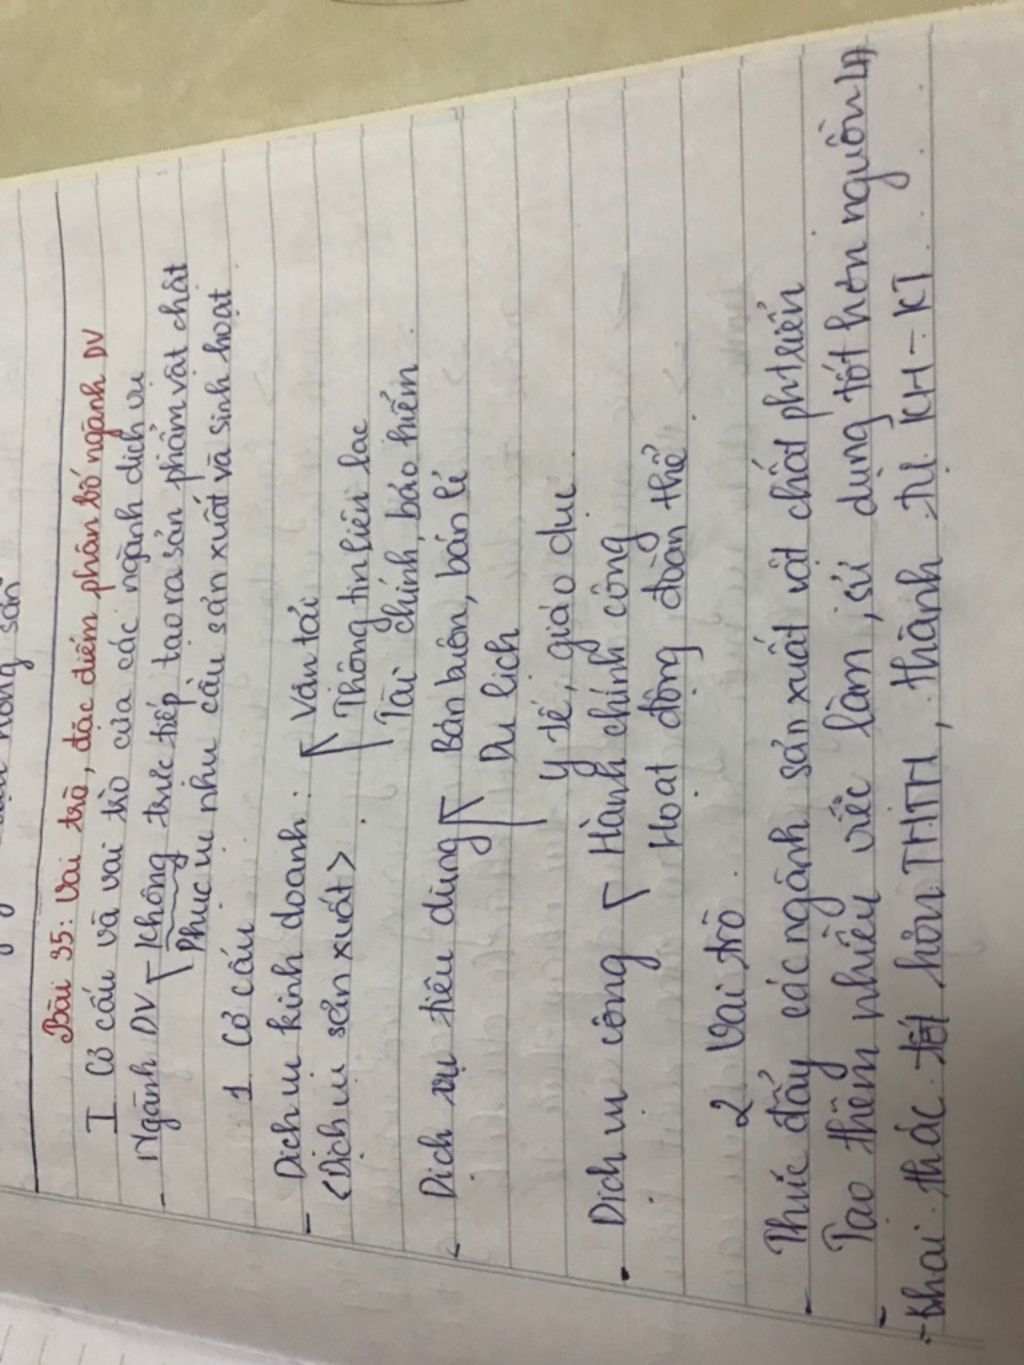 nông sản
Bài 35: Vai trò, đặc điểm phân bố ngành DV
I Cơ cấu và vai trò của các ngành dịch vụ
Ngành DV Không trực tiếp tạo ra sản phẩm vật chất
Phục vụ nhu cầu sản xuất và sinh hoạt
1 Cơ cấu
- Dịch vụ kinh doanh: Vận tải
<Dịch vụ sản xuất> Thông tin liên lạc
Tài chính, bảo hiểm
- Dịch vụ tiêu dùng Bán buôn, bán lẻ
Du lịch
Y tế, giáo dục
- Dịch vụ công Hành chính công
Hoạt động đoàn thể
2 Vai trò
- Thúc đẩy các ngành sản xuất vật chất phtriển
- Tạo thêm nhiều việc làm, sử dụng tốt hơn nguồn LĐ
- Khai thác tốt hơn THTH, thành tựu KH-KT